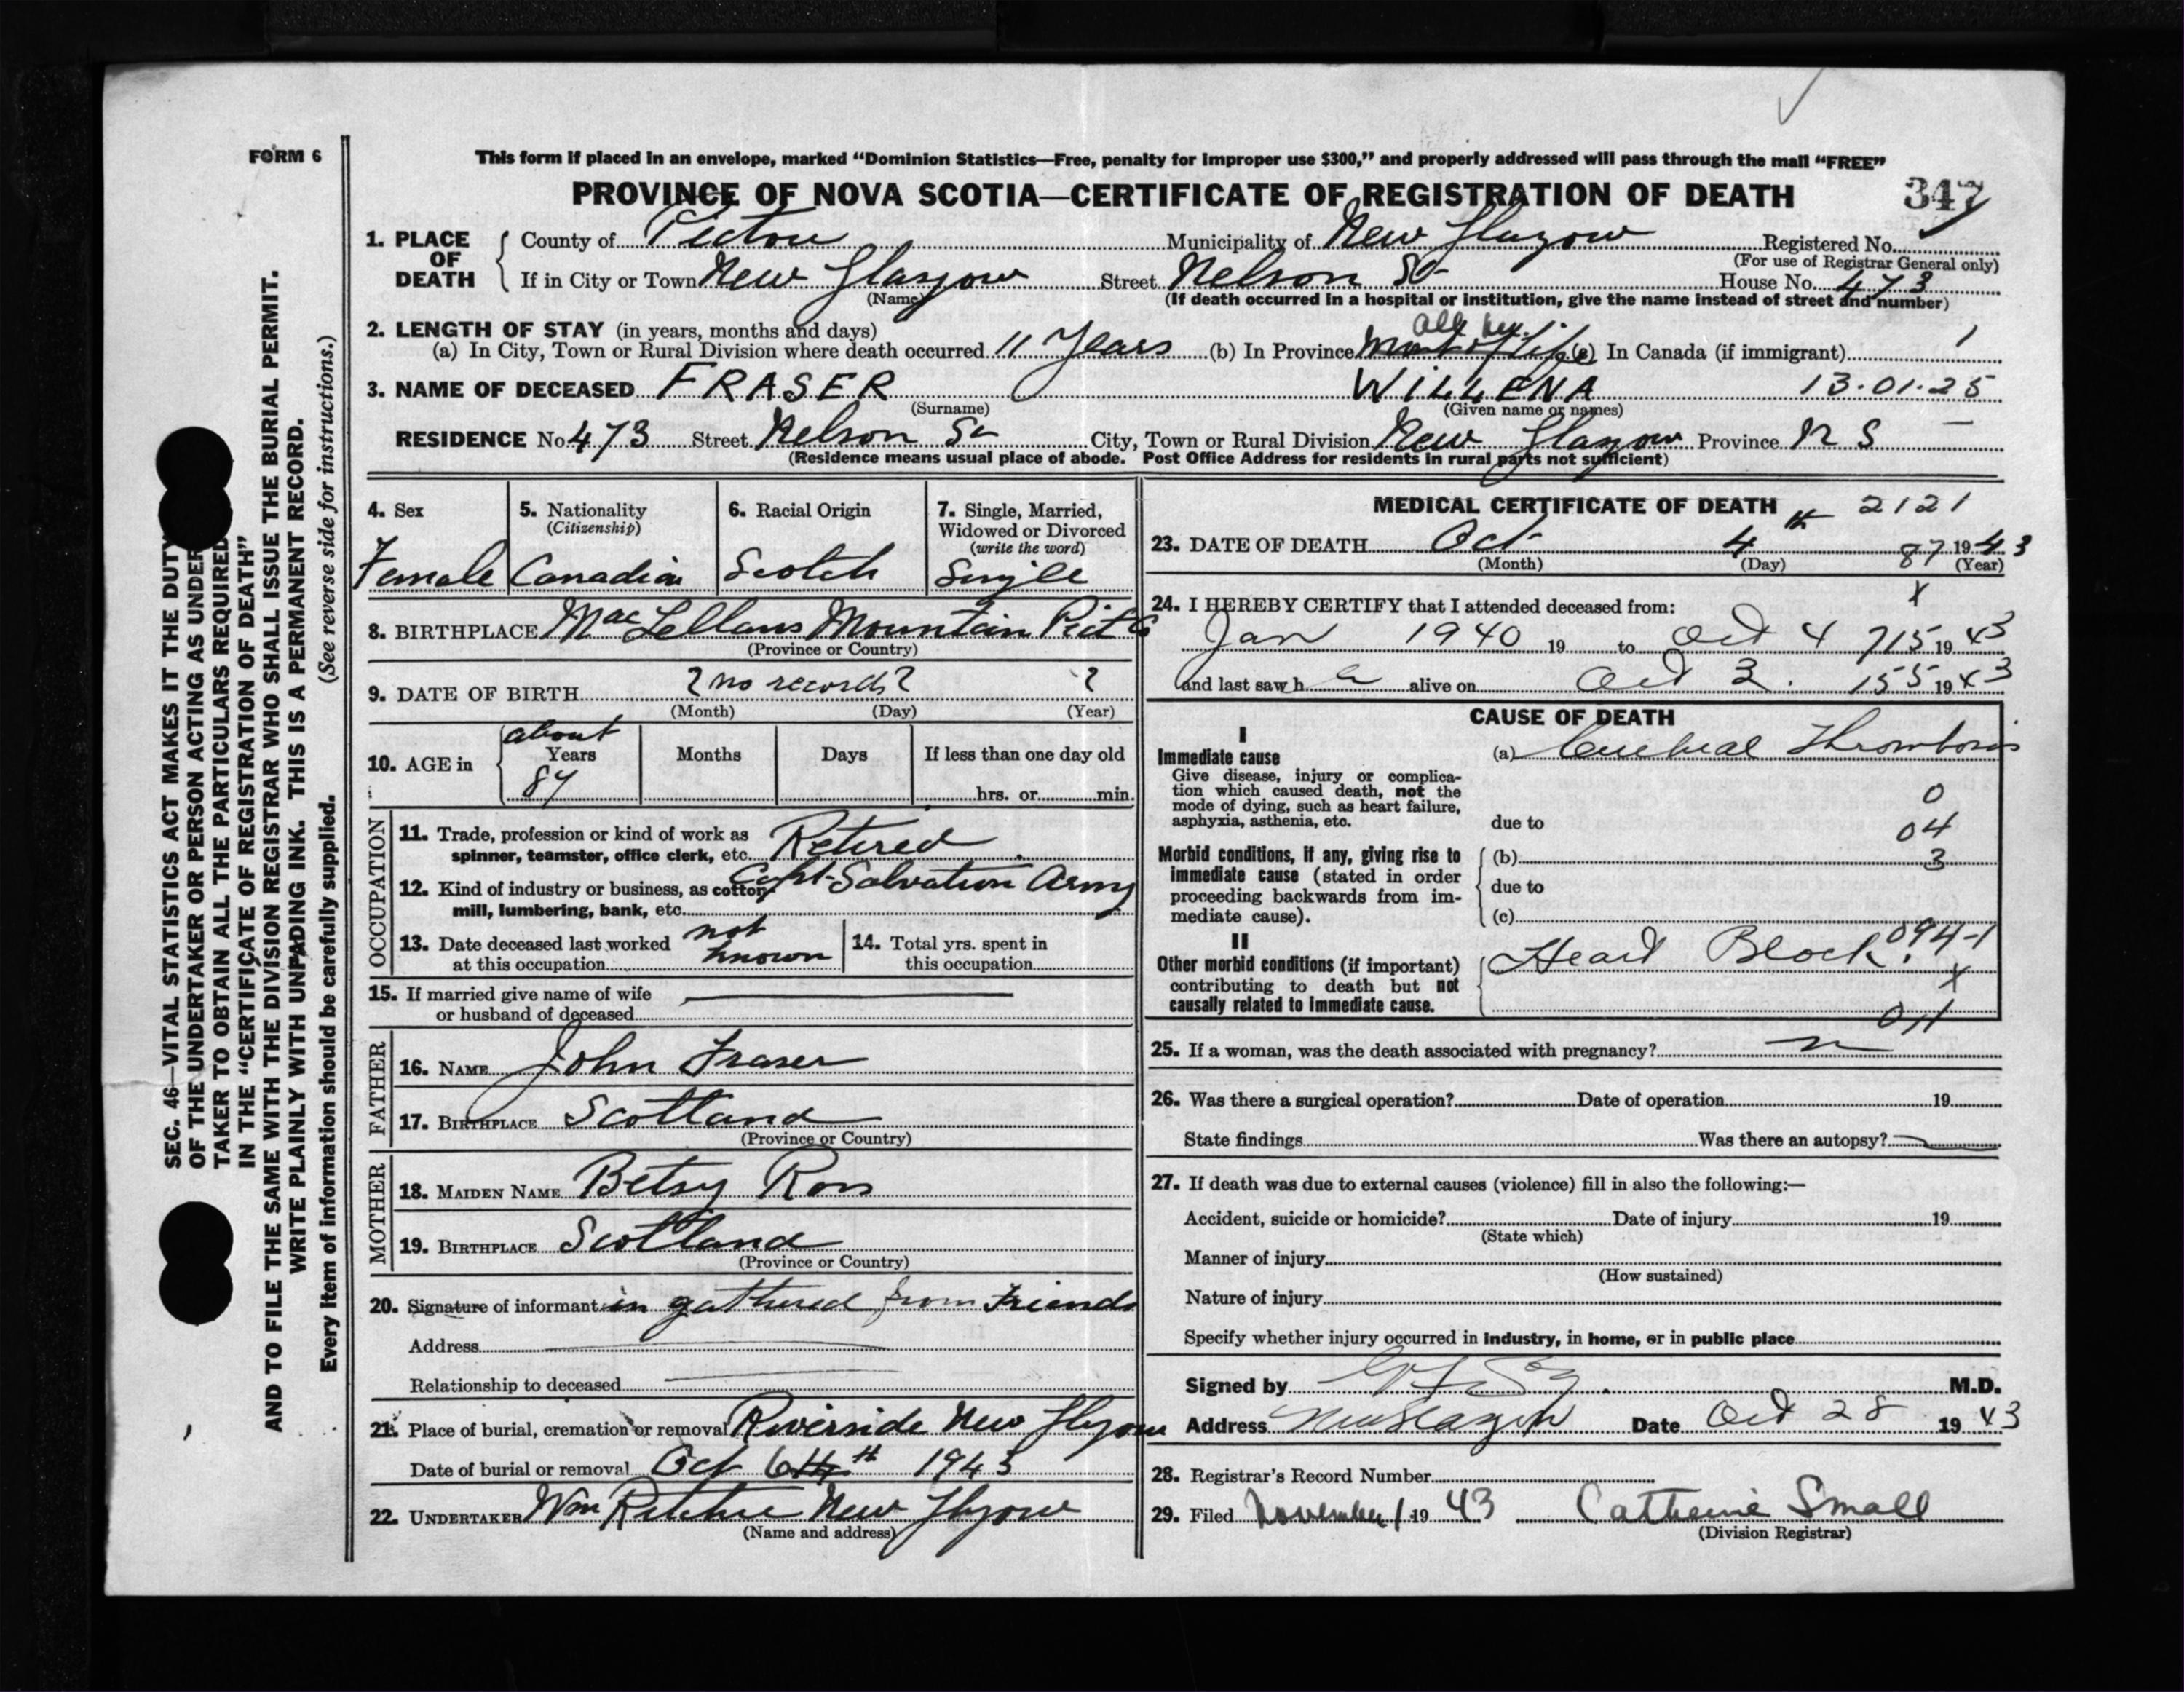 FORM 6
This form if placed in an envelope, marked “Dominion Statistics—Free, penalty for improper use $300,” and properly addressed will pass through the mail “FREE”
PROVINCE OF NOVA SCOTIA—CERTIFICATE OF REGISTRATION OF DEATH
347
1. PLACE OF DEATH
County of Pictou Municipality of New Glasgow Registered No.
(For use of Registrar General only)
If in City or Town New Glasgow Street Nelson St House No. 473
(Name) (If death occurred in a hospital or institution, give the name instead of street and number)
2. LENGTH OF STAY (in years, months and days)
(a) In City, Town or Rural Division where death occurred 11 Years (b) In Province Most of life (c) In Canada (if immigrant)
3. NAME OF DECEASED FRASER WILLENA 13.01.25
(Surname) (Given name or names)
RESIDENCE No. 473 Street Nelson St City, Town or Rural Division New Glasgow Province N S
(Residence means usual place of abode. Post Office Address for residents in rural parts not sufficient)
4. Sex
Female
5. Nationality
(Citizenship)
Canadian
6. Racial Origin
Scotch
7. Single, Married,
Widowed or Divorced
(write the word)
Single
8. BIRTHPLACE MacLellans Mountain Pict Co
(Province or Country)
9. DATE OF BIRTH ? no records? ?
(Month) (Day) (Year)
10. AGE in
about
Years Months Days If less than one day old
87 hrs. or min.
OCCUPATION
11. Trade, profession or kind of work as
spinner, teamster, office clerk, etc. Retired
12. Kind of industry or business, as cotton Capt-Salvation Army
mill, lumbering, bank, etc.
13. Date deceased last worked
at this occupation not known
14. Total yrs. spent in
this occupation
15. If married give name of wife
or husband of deceased
FATHER
16. NAME John Fraser
17. BIRTHPLACE Scotland
(Province or Country)
MOTHER
18. MAIDEN NAME Betsy Ross
19. BIRTHPLACE Scotland
(Province or Country)
20. Signature of informant in gathered from Friends
Address
Relationship to deceased
21. Place of burial, cremation or removal Riverside New Glgow
Date of burial or removal Oct 6th 1943
22. UNDERTAKER Wm Ritchie New Glgow
(Name and address)
MEDICAL CERTIFICATE OF DEATH 2121
23. DATE OF DEATH Oct 4th 87 1943
(Month) (Day) (Year)
x
24. I HEREBY CERTIFY that I attended deceased from:
Jan 1940 19 to Oct 4 715 19 43
and last saw h er alive on Oct 3. 155 19 43
CAUSE OF DEATH
I
Immediate cause
Give disease, injury or complica-
tion which caused death, not the
mode of dying, such as heart failure,
asphyxia, asthenia, etc.
(a) Cerebral Thrombosis
0
due to
04
Morbid conditions, if any, giving rise to
immediate cause (stated in order
proceeding backwards from im-
mediate cause).
(b) 3
due to
(c)
II
Other morbid conditions (if important)
contributing to death but not
causally related to immediate cause.
Heart Block. 094-1
x
25. If a woman, was the death associated with pregnancy?
26. Was there a surgical operation? Date of operation 19
State findings Was there an autopsy?
27. If death was due to external causes (violence) fill in also the following:—
Accident, suicide or homicide? Date of injury 19
(State which)
Manner of injury
(How sustained)
Nature of injury
Specify whether injury occurred in industry, in home, or in public place
Signed by M.D.
Address New Glasgow Date Oct 28 19 43
28. Registrar's Record Number
29. Filed November 1 19 43 Catherine Small
(Division Registrar)
SEC. 46—VITAL STATISTICS ACT MAKES IT THE DUTY
OF THE UNDERTAKER OR PERSON ACTING AS UNDER
TAKER TO OBTAIN ALL THE PARTICULARS REQUIRED
IN THE “CERTIFICATE OF REGISTRATION OF DEATH”
AND TO FILE THE SAME WITH THE DIVISION REGISTRAR WHO SHALL ISSUE THE BURIAL PERMIT.
WRITE PLAINLY WITH UNFADING INK. THIS IS A PERMANENT RECORD.
Every item of information should be carefully supplied. (See reverse side for instructions.)